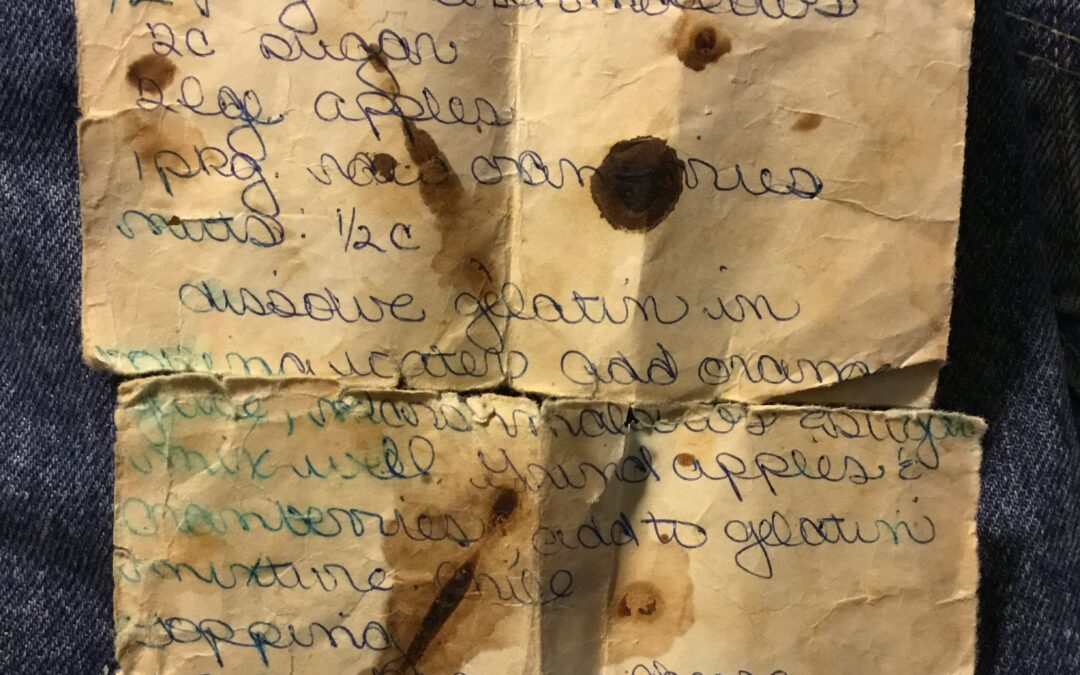 2c sugar
2 lge apples
1 pkg. raw cranberries
nuts: 1/2 c
dissolve gelatin in
water add orange
juice, marshmallows & sugar
mix well. grind apples &
cranberries, add to gelatin
mixture chill
Topping